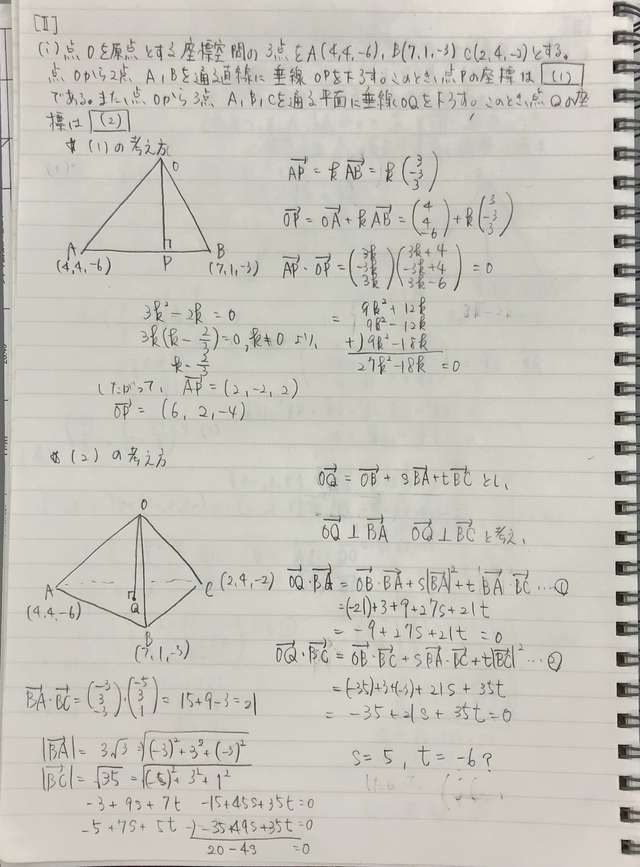 [Ⅱ]
(i) 点Oを原点とする座標空間の3点をA(4,4,-6), B(7,1,-3) C(2,4,-2)とする。
点Oから2点 A,Bを通る直線に垂線OPを下ろす。このとき、点Pの座標は (1)
である。また、点Oから3点 A,B,Cを通る平面に垂線OQを下ろす。このとき、点Qの座
標は (2)
(1)の考え方
O
A
(4,4,-6)
P
B
(7,1,-3)
→AP = k →AB = k (3 -3 3)
→OP = →OA + k →AB = (4 4 -6) + k (3 -3 3)
→AP・→OP = (3k -3k 3k)(3k+4 -3k+4 3k-6) = 0
= 9k²+12k
9k²-12k
+) 9k²-18k
27k²-18k = 0
3k²-2k = 0
3k(k-2/3)=0, k≠0 より,
k=2/3
したがって, →AP = (2,-2,2)
→OP = (6, 2, -4)
(2) の考え方
O
A
(4,4,-6)
Q
C (2,4,-2)
B
(7,1,-3)
→OQ = →OB + s→BA + t→BC とし,
→OQ ⊥ →BA →OQ ⊥ →BC と考え,
→OQ・→BA = →OB・→BA + s|→BA|² + t →BA・→BC …①
= (-21)+3+9+27s+21t
= -9+27s+21t = 0
→OQ・→BC = →OB・→BC + s→BA・→BC + t|→BC|² …②
= (-35)+3+(-3)+21s+35t
= -35+21s+35t=0
s=5, t=-6?
→BA・→BC = (-3 3 -3)・(-5 3 1) = 15+9-3=21
|→BA| = 3√3 = √(-3)²+3²+(-3)²
|→BC| = √35 = √(-5)²+3²+1²
-3+9s+7t -15+45s+35t=0
-5+7s+5t -) -35+49s+35t=0
20-4s =0